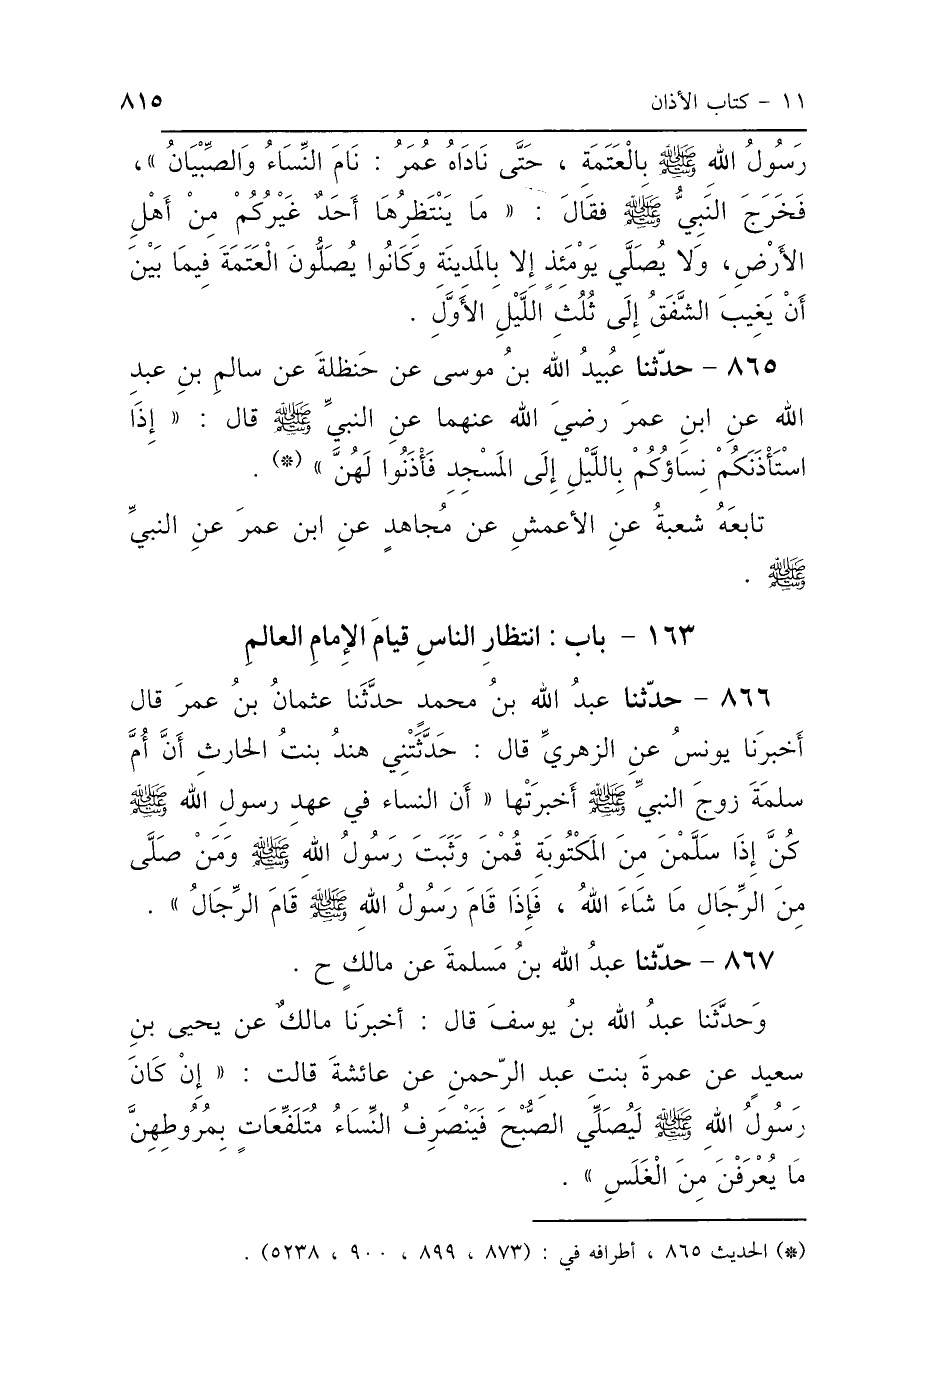 ١١ - كتاب الأذان ٨١٥
رَسُولُ الله ﷺ بِالْعَتَمَةِ ، حَتَّى نَادَاهُ عُمَرُ : نَامَ النِّسَاءُ وَالصِّبْيَانُ » ،
فَخَرَجَ النَبِيُّ ﷺ فقَالَ : « مَا يَنْتَظِرُهَا أَحَدٌ غَيْرُكُمْ مِنْ أَهْلِ
الأَرْضِ، وَلا يُصَلَّي يَوْمَئِذٍ إلا بِالمَدِينَةِ وَكَانُوا يُصَلُّونَ الْعَتَمَةَ فِيمَا بَيْنَ
أَنْ يَغِيبَ الشَّفَقُ إِلَى ثُلُثِ اللَّيْلِ الأَوَّلِ .
٨٦٥ - حدّثنا عُبيدُ الله بنُ موسى عن حَنظلةَ عن سالمِ بنِ عبدِ
الله عنِ ابنِ عمرَ رضيَ الله عنهما عنِ النبيِّ ﷺ قال : « إِذَا
اسْتَأْذَنَكُمْ نِسَاؤُكُمْ بِاللَّيْلِ إِلَى المَسْجِدِ فَأْذَنُوا لَهُنَّ » (*) .
تابعَهُ شعبةُ عنِ الأعمشِ عن مُجاهدٍ عنِ ابن عمرَ عنِ النبيِّ
ﷺ .
١٦٣ - باب : انتظارِ الناسِ قيامَ الإمامِ العالمِ
٨٦٦ - حدّثنا عبدُ الله بنُ محمدٍ حدَّثَنا عثمانُ بنُ عمرَ قال
أخبرَنا يونسُ عنِ الزهريِّ قال : حَدَّثَتْنِي هندُ بنتُ الحارثِ أَنَّ أُمَّ
سلمَةَ زوجَ النبيِّ ﷺ أخبرَتْها « أن النساء في عهدِ رسولِ الله ﷺ
كُنَّ إِذَا سَلَّمْنَ مِنَ المَكْتُوبَةِ قُمْنَ وَثَبَتَ رَسُولُ اللهِ ﷺ وَمَنْ صَلَّى
مِنَ الرِّجَالِ مَا شَاءَ اللهُ ، فَإِذَا قَامَ رَسُولُ اللهِ ﷺ قَامَ الرِّجَالُ » .
٨٦٧ - حدّثنا عبدُ الله بنُ مَسلمةَ عن مالكٍ ح .
وَحدَّثَنا عبدُ الله بنُ يوسفَ قال : أخبرَنا مالكٌ عن يحيى بنِ
سعيدٍ عن عمرةَ بنتِ عبدِ الرّحمنِ عن عائشةَ قالت : « إِنْ كَانَ
رَسُولُ اللهِ ﷺ لَيُصَلِّي الصُّبْحَ فَيَنْصَرِفُ النِّسَاءُ مُتَلَفِّعَاتٍ بِمُرُوطِهِنَّ
مَا يُعْرَفْنَ مِنَ الْغَلَسِ » .
(*) الحديث ٨٦٥ ، أطرافه في : (٨٧٣ ، ٨٩٩ ، ٩٠٠ ، ٥٢٣٨) .